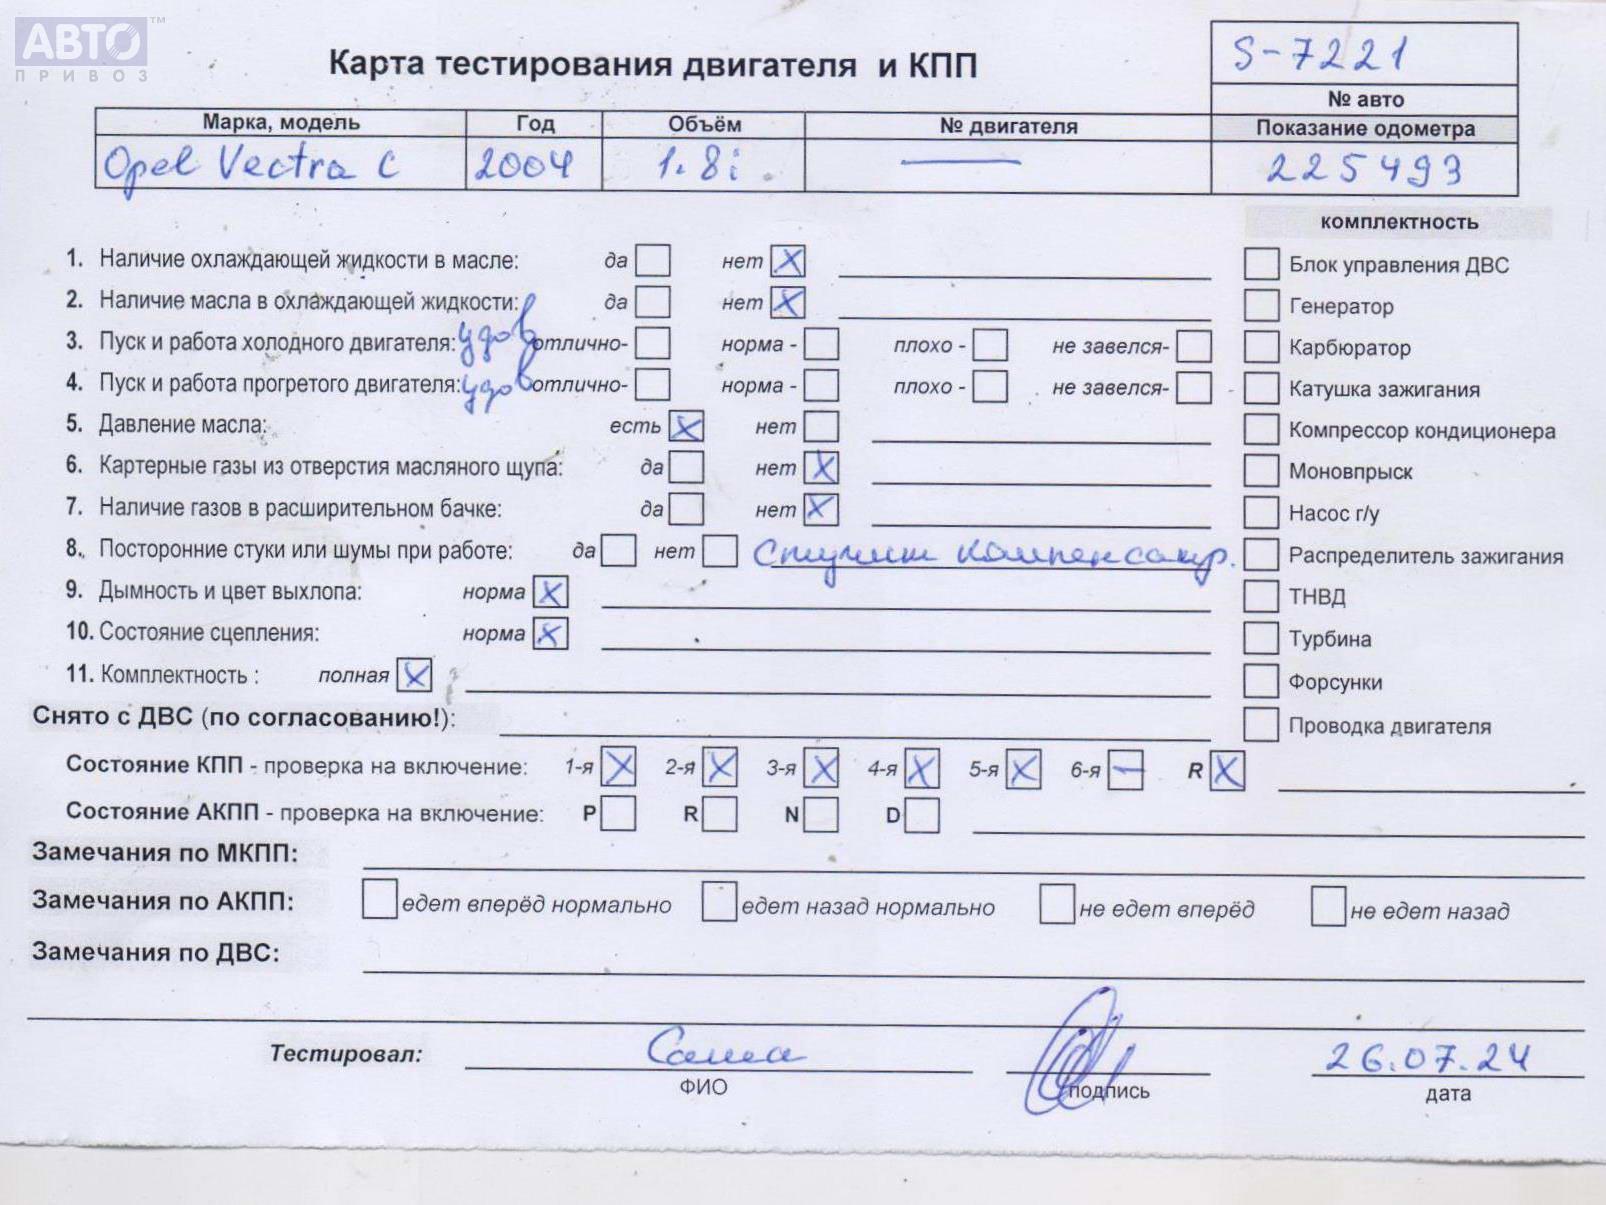 АВТО™
ПРИВОЗ
Карта тестирования двигателя и КПП
S-7221
№ авто
Марка, модель Год Объём № двигателя Показание одометра
Opel Vectra C 2004 1.8i — 225493
комплектность
1. Наличие охлаждающей жидкости в масле: да нет X Блок управления ДВС
2. Наличие масла в охлаждающей жидкости: да нет X Генератор
3. Пуск и работа холодного двигателя: удов отлично- норма - плохо - не завелся- Карбюратор
4. Пуск и работа прогретого двигателя: удов отлично- норма - плохо - не завелся- Катушка зажигания
5. Давление масла: есть X нет Компрессор кондиционера
6. Картерные газы из отверстия масляного щупа: да нет X Моновпрыск
7. Наличие газов в расширительном бачке: да нет X Насос г/у
8. Посторонние стуки или шумы при работе: да нет Стучит компенсатр. Распределитель зажигания
9. Дымность и цвет выхлопа: норма X ТНВД
10. Состояние сцепления: норма X Турбина
11. Комплектность : полная X Форсунки
Снято с ДВС (по согласованию!): Проводка двигателя
Состояние КПП - проверка на включение: 1-я X 2-я X 3-я X 4-я X 5-я X 6-я — R X
Состояние АКПП - проверка на включение: P R N D
Замечания по МКПП:
Замечания по АКПП: едет вперёд нормально едет назад нормально не едет вперёд не едет назад
Замечания по ДВС:
Тестировал: Саша 26.07.24
ФИО подпись дата